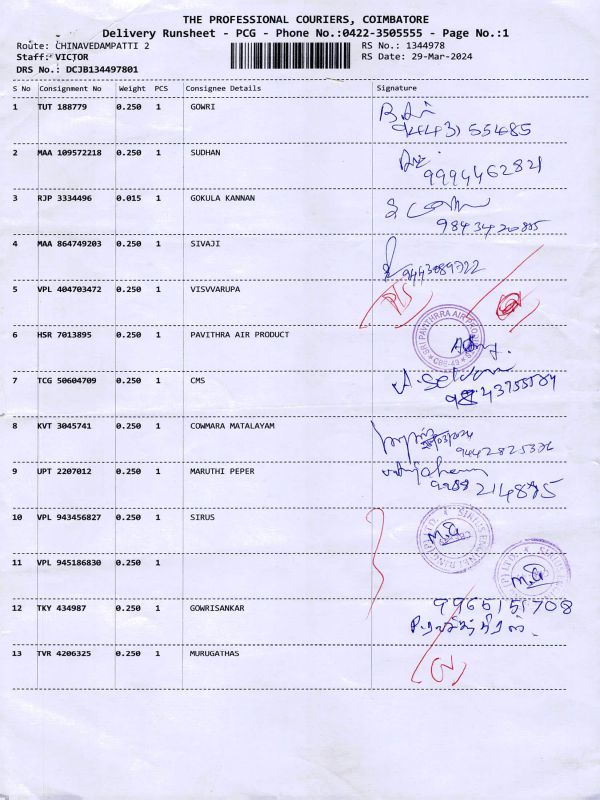 THE PROFESSIONAL COURIERS, COIMBATORE
Delivery Runsheet - PCG - Phone No.:0422-3505555 - Page No.:1
Route: CHINAVEDAMPATTI 2 RS No.: 1344978
Staff: VICTOR RS Date: 29-Mar-2024
DRS No.: DCJB134497801
S No Consignment No Weight PCS Consignee Details Signature
1 TUT 188779 0.250 1 GOWRI
9443155485
2 MAA 109572218 0.250 1 SUDHAN
9994462821
3 RJP 3334496 0.015 1 GOKULA KANNAN
4 MAA 864749203 0.250 1 SIVAJI
5 VPL 404703472 0.250 1 VISVVARUPA
6 HSR 7013895 0.250 1 PAVITHRA AIR PRODUCT
7 TCG 50604709 0.250 1 CMS
8 KVT 3045741 0.250 1 COWMARA MATALAYAM
9 UPT 2207012 0.250 1 MARUTHI PEPER
10 VPL 943456827 0.250 1 SIRUS
11 VPL 945186830 0.250 1
12 TKY 434987 0.250 1 GOWRISANKAR
9965151708
13 TVR 4206325 0.250 1 MURUGATHAS